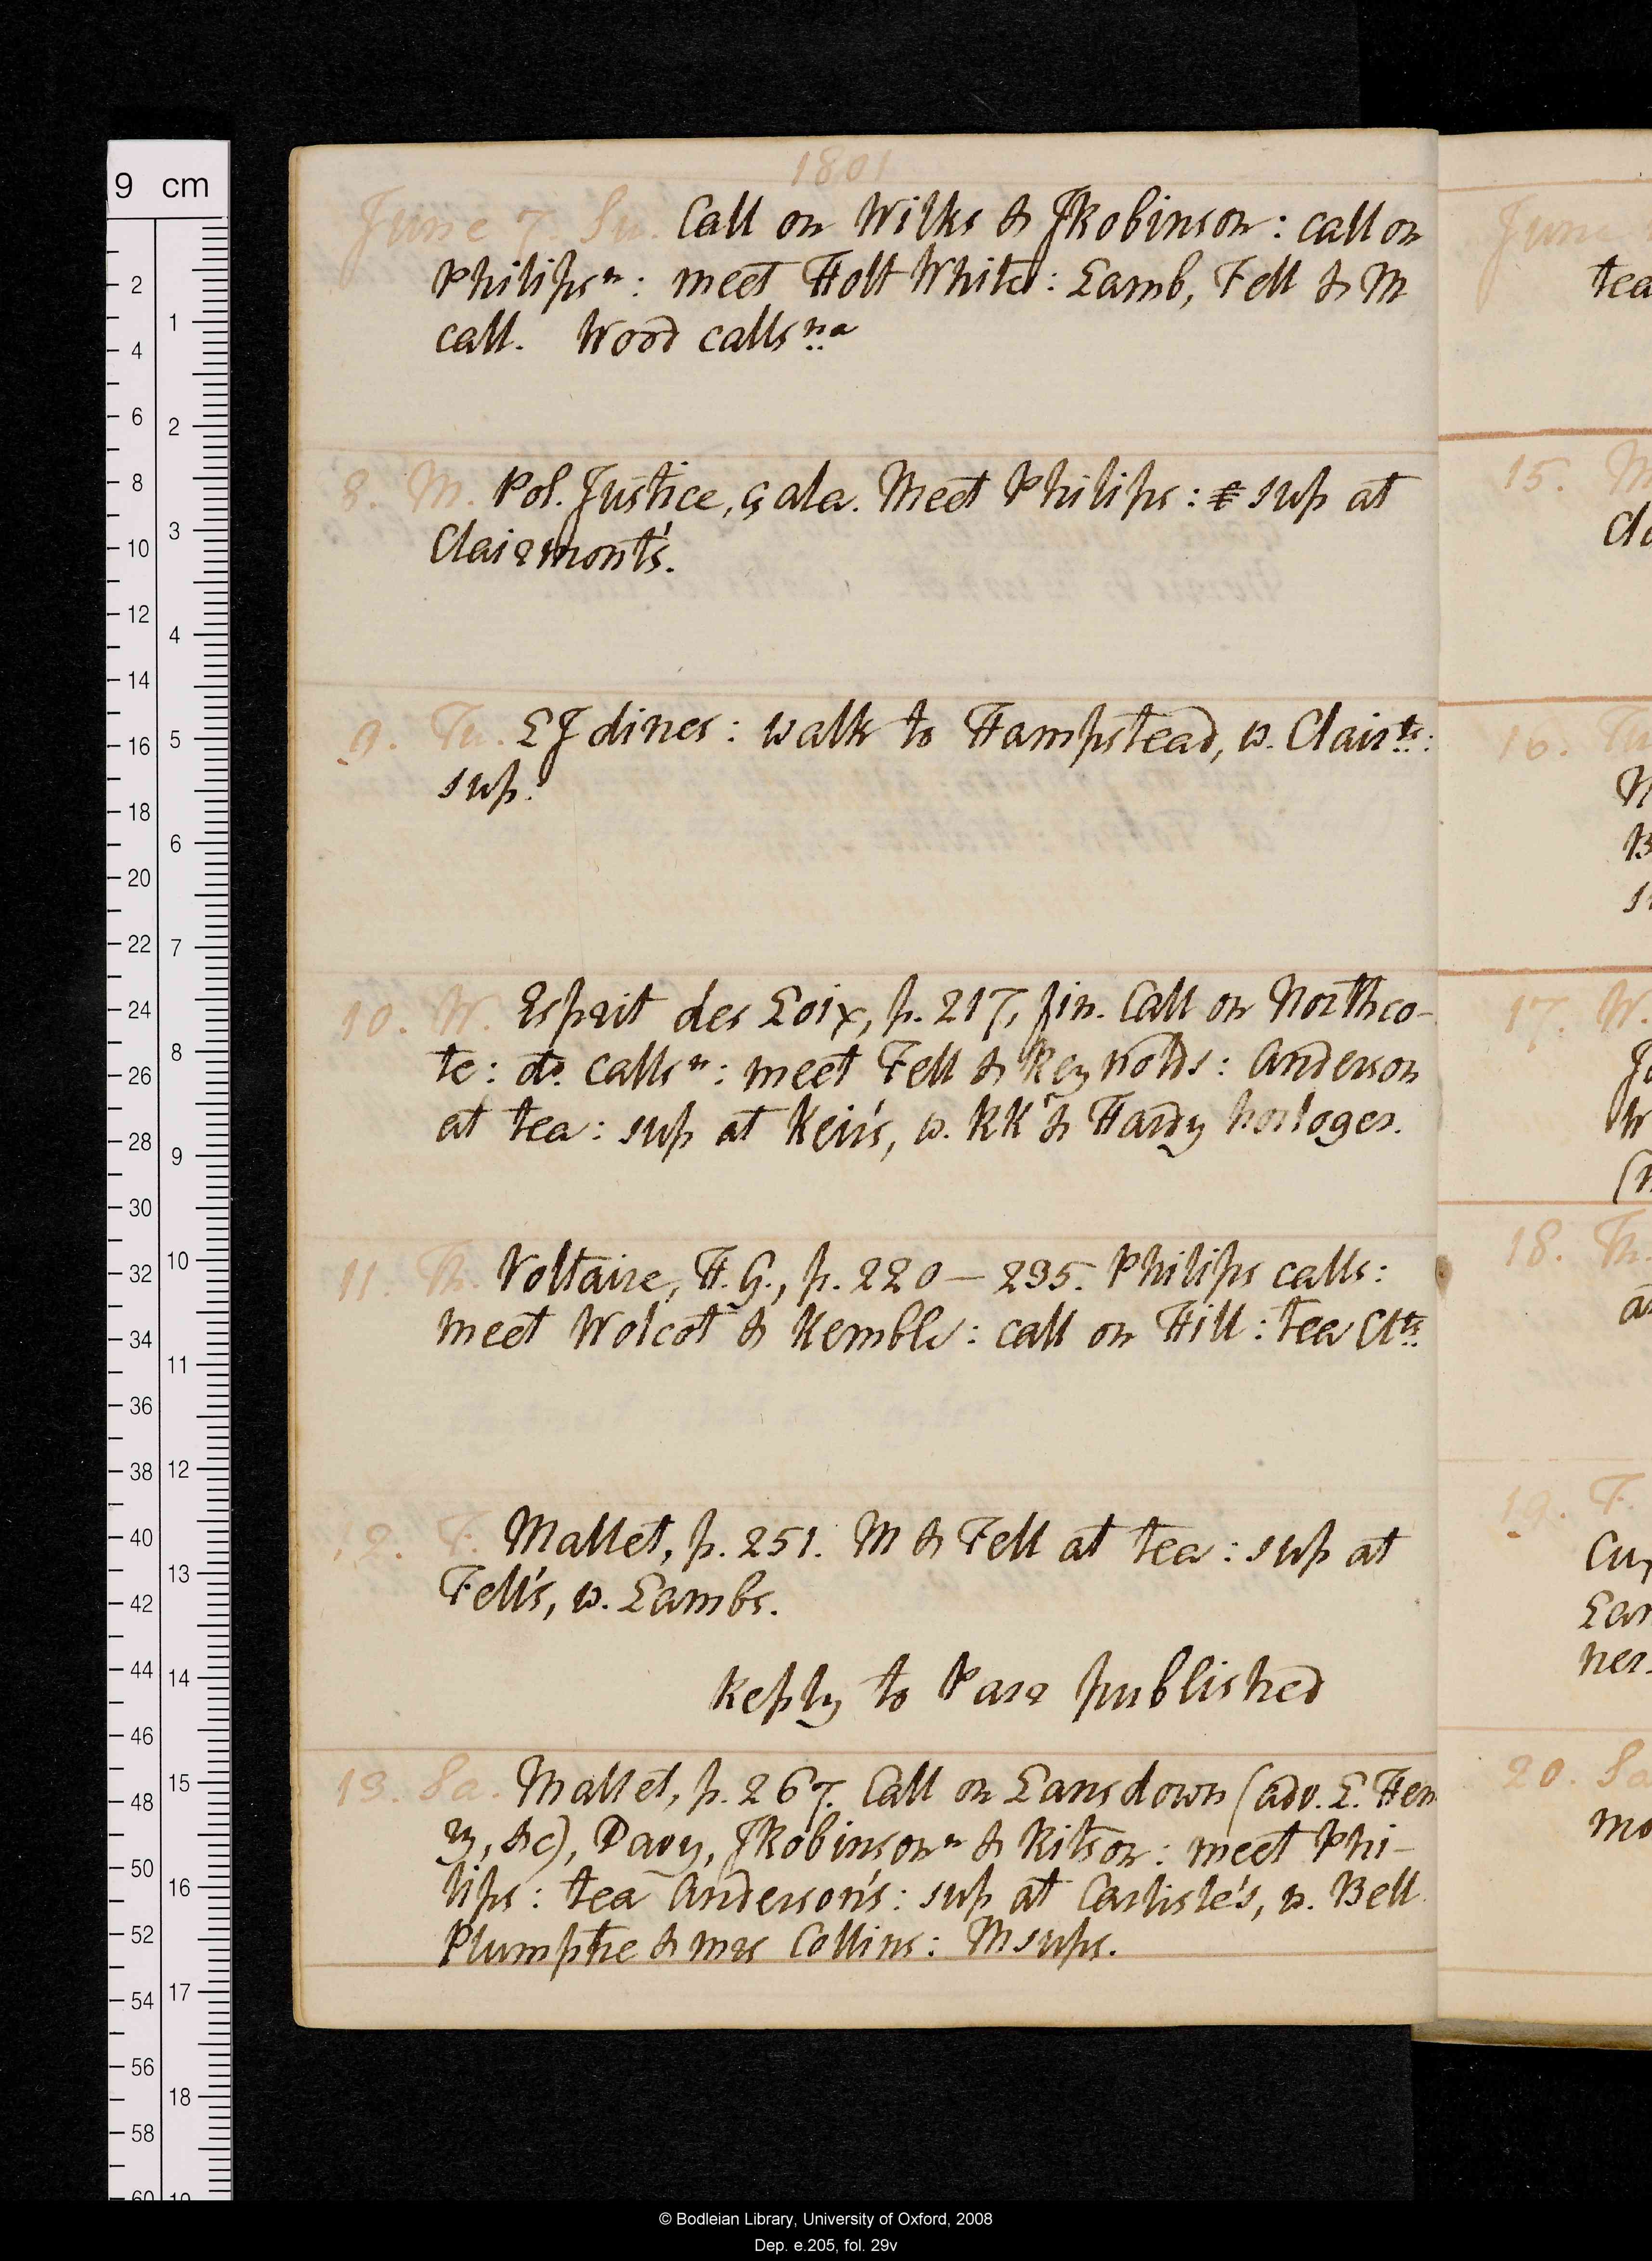 1801
June 7. Su. Call on Wilks & JRobinson: call on
Philips n: meet Holt White: Lamb, Fell & M
call. Wood calls na
8. M. Pol. Justice, çala. Meet Philips: sup at
Clairmont's.
9. Tu. LJ dines: walk to Hampstead, w. Clairts:
sup.
10. W. Esprit des Loix, p. 217, fin. Call on Northco-
te: do. calls n: meet Fell & Reynolds: Anderson
at tea: sup at Keir's, w. RK & Hardy horloger.
11. Th. Voltaire, H.G., p. 220—235. Philips calls:
meet Wolcot & Kemble: call on Hill: tea Cts.
12. F. Mallet, p. 251. M & Fell at tea: sup at
Fell's, w. Lambs.
Reply to Parr published
13. Sa. Mallet, p. 267. Call on Lansdown (adv. L. Hen
ry, &c), Davy, JRobinson n & Ritson: meet Phi-
lips: tea Anderson's: sup at Carlisle's, w. Bell
Plumptre & mrs Collins: M sups.
June
tea
15. M
Cla
16. Tu
N
B
s
17. W.
Jo
W
18. Th.
a
19. F.
Cu
Lam
ner.
20. Sa
mo
9 cm
2
4
6
8
10
12
14
16
18
20
22
24
26
28
30
32
34
36
38
40
42
44
46
48
50
52
54
56
58
60
1
2
3
4
5
6
7
8
9
10
11
12
13
14
15
16
17
18
19
© Bodleian Library, University of Oxford, 2008
Dep. e.205, fol. 29v